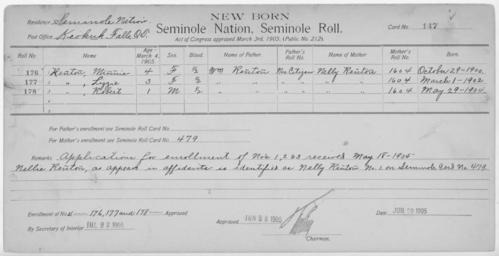 NEW BORN
Residence, Seminole Nation Seminole Nation, Seminole Roll. Card No. 147
Post Office, Keokuk Falls, O.T. Act of Congress approved March 3rd, 1905, (Public No. 212).
Roll No. Name Age March 4, 1905. Sex. Blood. Name of Father Father's Roll No. Name of Mother Mother's Roll No. Born.
176 Minnie 4 F ½ Wm Non Citizen Nelly 1604 October 29-1900
177 " 3 F ½ " " " " 1604 March 1-1902
178 " Robert 1 M ½ " " " " 1604 May 29-1904
For Father's enrollment see Seminole Roll Card No.
For Mother's enrollment see Seminole Roll Card No. 479
Remarks Application for enrollment of Nos 1, 2 & 3 received May 18-1905
Nellie as appears in affidavits is identified as Nelly No. 1 on Seminole Card No. 479
Enrollment of No's 176, 177 and 178 Approved
By Secretary of Interior 1905 Approved, 1905 Date, 1905
Chairman.